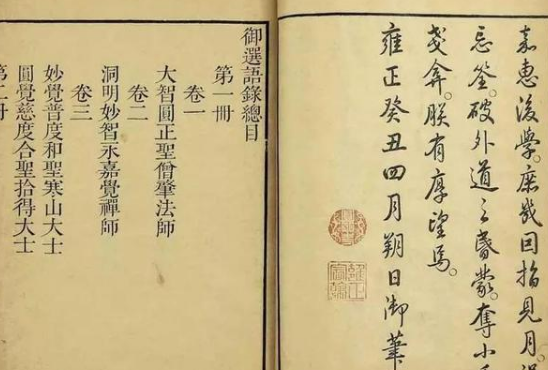 嘉惠後學。庶幾因指見月。
忘筌。破外道之昏蒙。奪小
朕有厚望焉。
雍正癸丑四月朔日御筆
雍正宸翰
御選語錄總目
第一冊
卷一
大智圓正聖僧肇法師
卷二
洞明妙智永嘉覺禪師
卷三
妙覺普度和聖寒山大士
圓覺慈度合聖拾得大士
第二冊